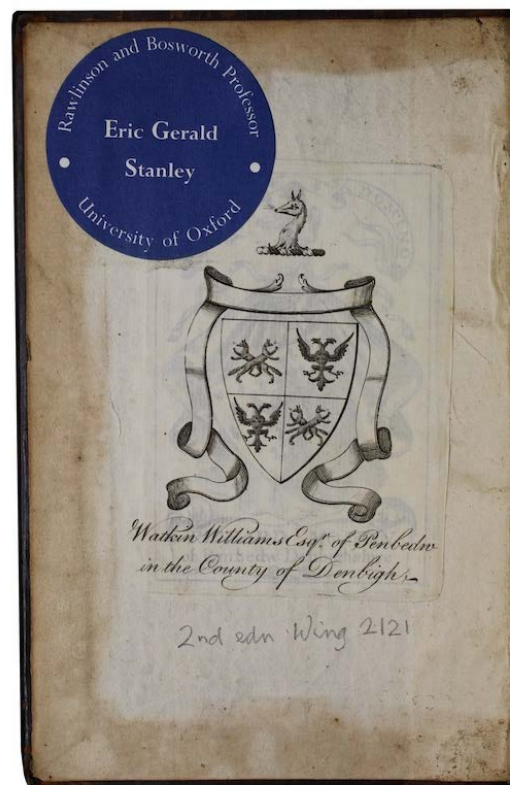 Rawlinson and Bosworth Professor
Eric Gerald
Stanley
University of Oxford
Watkin Williams Esqr. of Penbedw
in the County of Denbigh.
2nd edn Wing 2121